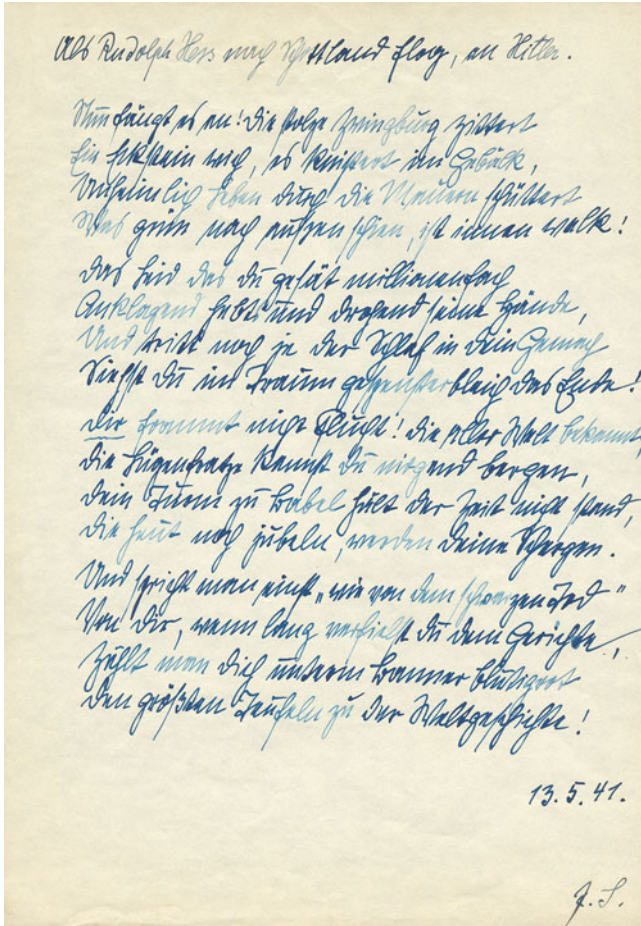 Als Rudolph Hess nach Schottland flog, an Hitler.
Nun fängt es an! Die stolze Zwingburg zittert
Ein Eckstein wich, es knistert im Gebälk,
Unheimlich Beben durch die Mauern schüttert
Was grün nach außen schien, ist innen welk!
Das Leid das du gesät millionenfach
Anklagend hebts und drohend seine Hände,
Und tritt noch je der Schlaf in dein Gemach
Siehst du im Traum gespensterbleich das Ende!
Dir frommt nicht Flucht! Die aller Welt bekannt,
Die Lügenfratze kannst du nirgend bergen,
Dein Turm zu Babel hält der Zeit nicht stand,
Die heut noch jubeln, werden deine Schergen.
Und spricht man einst „wie von dem schwarzen Tod"
Von dir, wenn lang verfielst du dem Gerichte,
Zählt man dich unterm Banner blutigrot
Den größten Teufeln zu der Weltgeschichte!
13.5.41.
J. S.